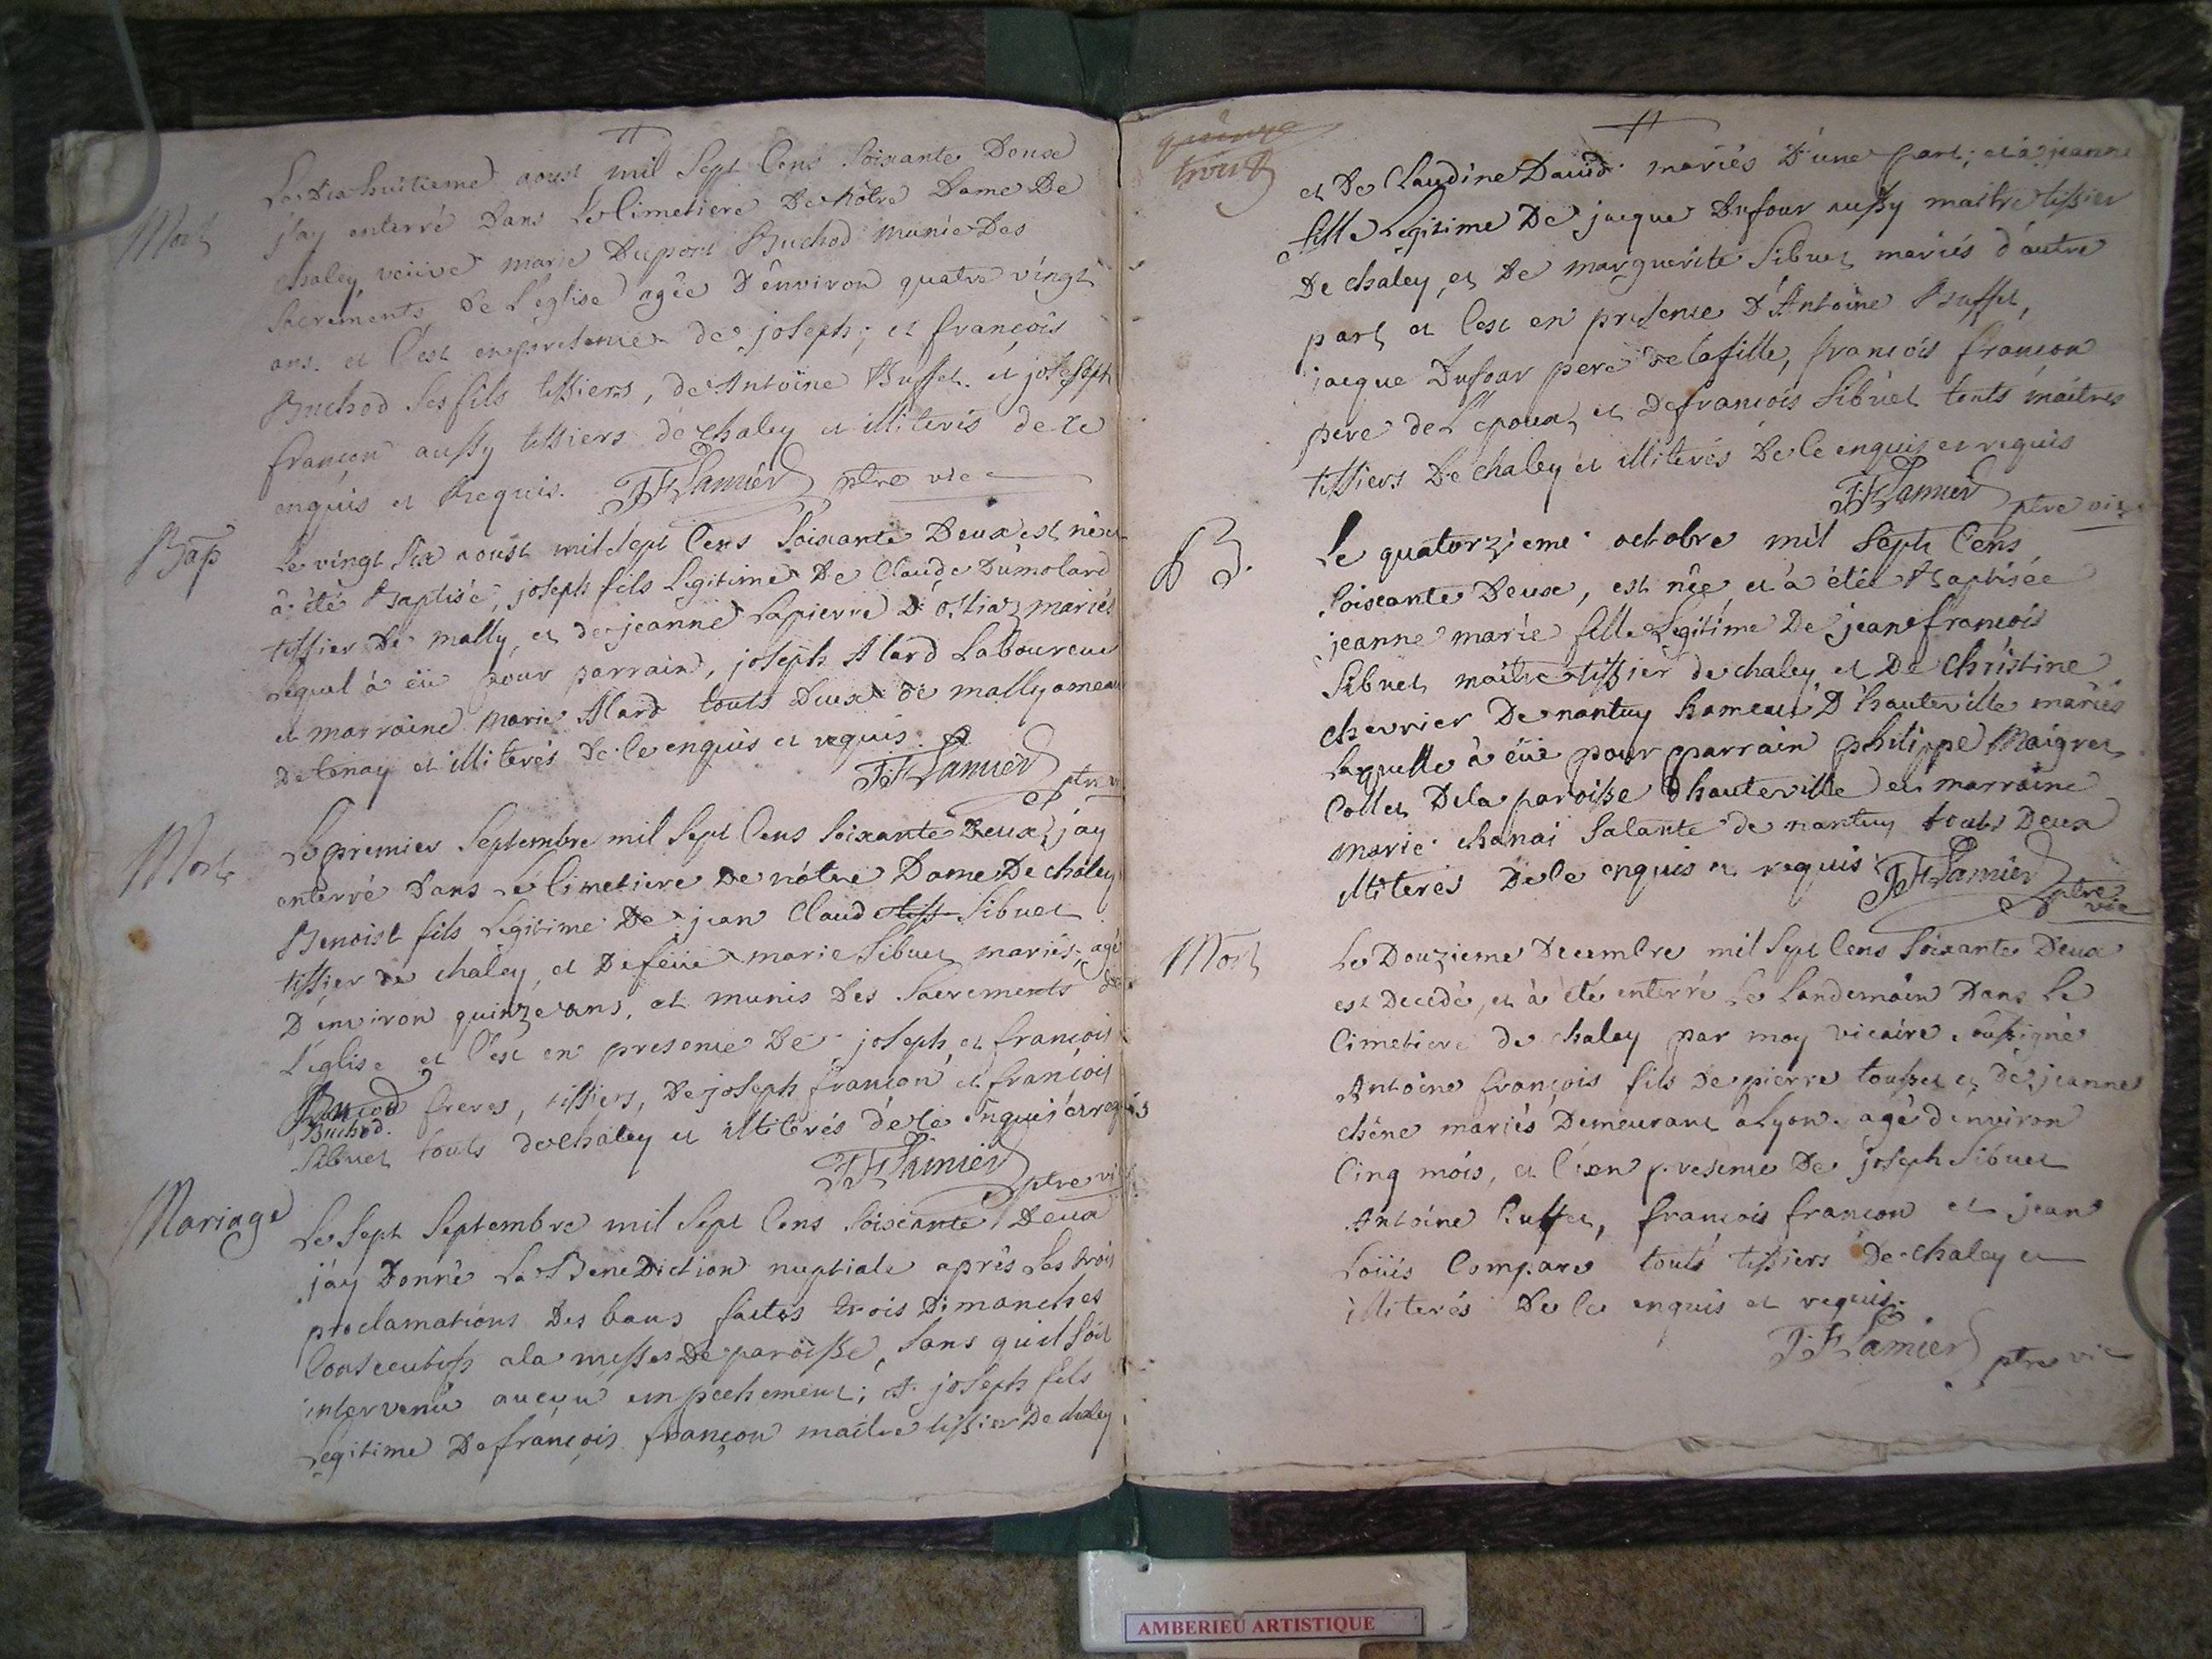 Mort
Le Dix huitieme aoust mil Sept Cens Soixante Deuxe
j'ay enterré Dans Le Cimetiere De Nôtre Dame De
chaley veüve marie Dupont Buchod munie Des
Sacrements de L'eglise agée D'environ quatre vingt
ans. et C'est en presence de joseph; et françois
Buchod Ses fils tissiers, de Antoine Buffet. et joseph
françon aussy tissiers de chaley et illiterés de Ce
enquis et Requis. JFLamier ptre vic
Bap
Le vingt Six aoust mil Sept Cens Soixante Deux est né et
à été Baptisé, joseph fils Legitime De Claude Dumolard
tissier De mally, et de jeanne Lapierre D'ostiaz mariés
Lequel à eü pour parrain, joseph Alard Laboureur
et marraine marie Alard touts Deux de mally ameau
De tenay et illiterés De Ce enquis et requis.
JFLamier ptre v
Mort
Le premier Septembre mil Sept Cens Soixante Deux j'ay
enterré Dans Le Cimetiere De nôtre Dame De chaley
Benoist fils Legitime De jean Claud Sibuet
tissier de chaley, et De feüe marie Sibuet mariés, agé
D'environ quinze ans, et munis Des Sacrements de
L'église et C'est en presence De joseph et françois
Buchod freres, tissiers, De joseph françon et françois
Buchod.
Sibuet touts de chaley et illiterés de Ce enquis et requis
JFLamier ptre vi
Mariage
Le Sept Septembre mil Sept Cens Soixante Deux
j'ay Donné La Benediction nuptiale aprés Les trois
proclamations Des bans faites trois Dimanches
Consecutifs a la messe De paroisse, Sans qu'il Soit
intervenü aucun empechement; A joseph fils
Legitime De françois françon maitre tissier De chaley
quinze
trout
et De Claudine David mariés D'une part; et à jeanne
fille Legitime De jacque Dufour aussy maitre tissier
De chaley, et De marguerite Sibuet mariés d'autre
part et C'est en presence D'Antoine Buffet,
jacque Dufour pere De la fille, françois françon
pere de L'epoux, et De françois Sibuet touts maitres
tissiers De chaley et illiterés De Ce enquis et requis
JFLamier ptre vic
B.
Le quatorzieme octobre mil Sept Cens
Soixante Deux, est née et à étée Baptisée
jeanne marie fille Legitime De jean françois
Sibuet maitre tissier de chaley et De Christine
Chevrier De nantuy hameau D'hauteville mariés
Laquelle à eüe pour parrain philippe Maigret
Collet De la paroisse d'hauteville et marraine
marie chanai Salante de nantuy touts Deux
illiterés De Ce enquis et requis JFLamier ptre
vic
Mort
Le Douzieme Decembre mil Sept Cens Soixante Deux
est Decedé, et à été enterré Le Landemain Dans Le
Cimetiere de chaley par moy vicaire Soussigné
Antoine françois fils De pierre tousset et de jeanne
chêne mariés Demeurant à Lyon. agé d'environ
Cinq mois, et C'e en presence De joseph Sibuet
Antoine Buffet, françois françon et jean
Loüis Compare touts tissiers De chaley et
illiterés De Ce enquis et requis.
JFLamier ptre vic
AMBERIEU ARTISTIQUE